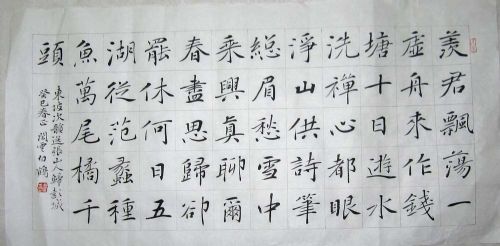 羨君飄蕩一
虛舟來作錢
塘十日遊水
洗禪心都眼
淨山供詩筆
總眉愁雪中
乘興真聊爾
春盡思歸卻
罷休何日五
湖從范蠡種
魚萬尾橘千
頭
東坡次韻送張山人歸彭城
癸巳春正